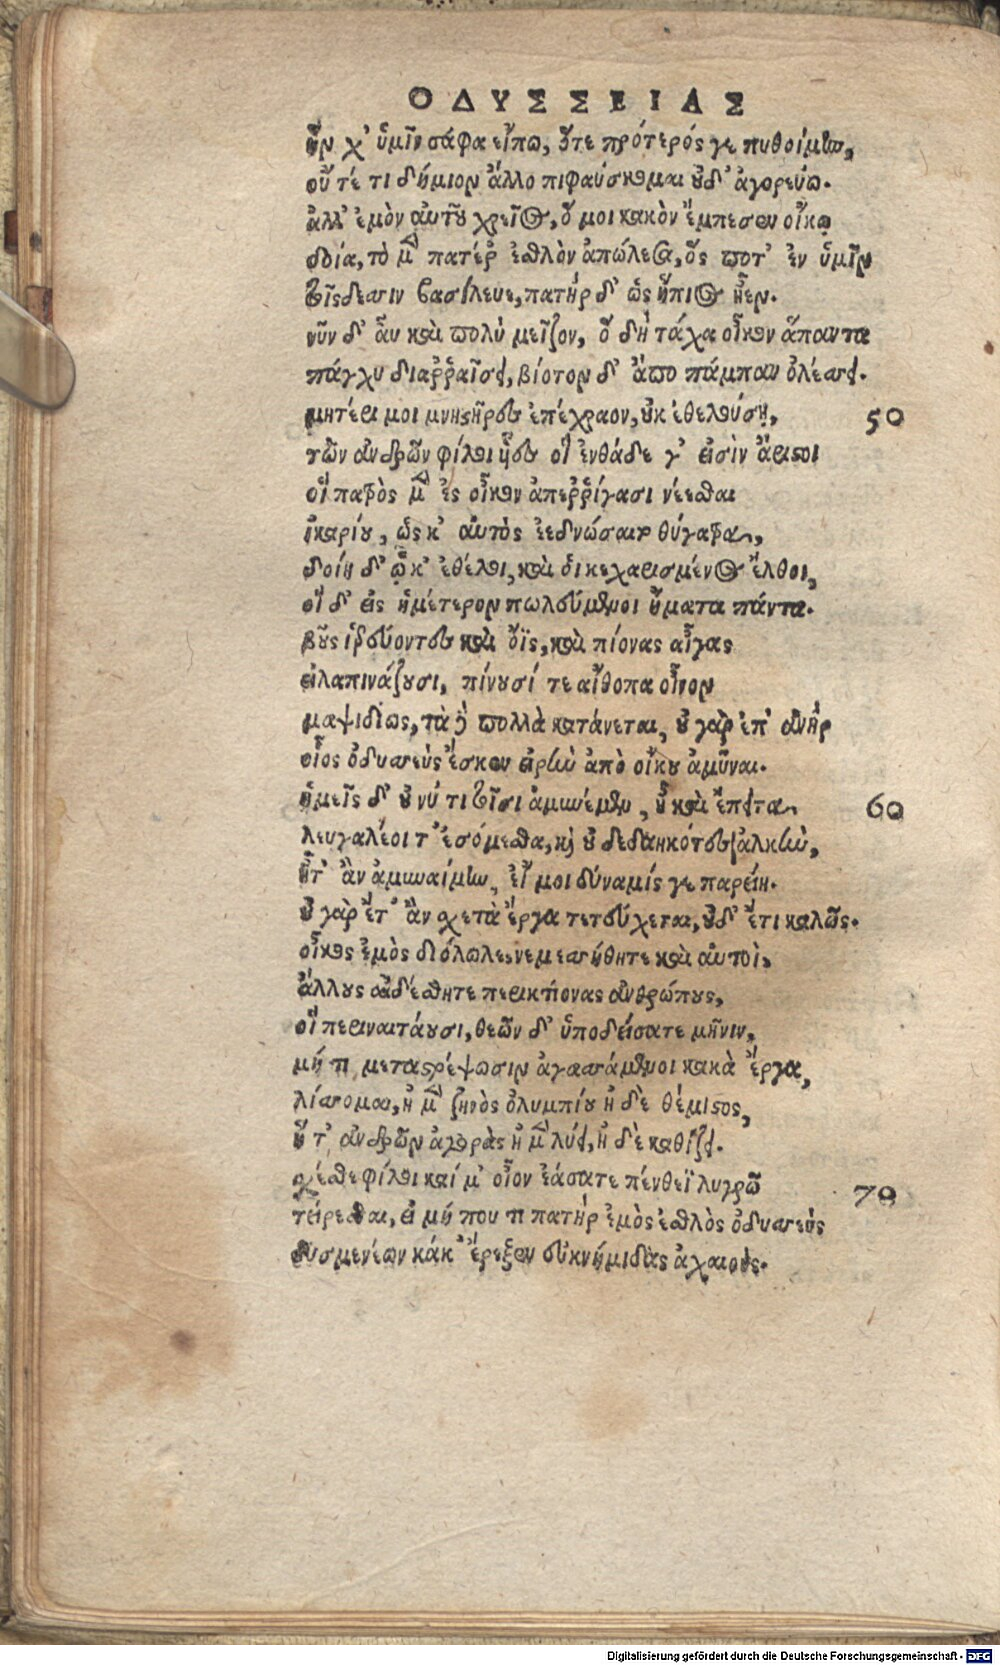 ΟΔΥΣΣΕΙΑΣ
ἥν χ' ὑμῖν σάφα εἴπω, ὅτε πρότερός γε πυθοίμην,
οὔτέ τι δήμιον ἄλλο πιφαύσκομαι οὐδ' ἀγορεύω.
ἀλλ' ἐμὸν αὐτοῦ χρεῖος, ὅ μοι κακὸν ἔμπεσεν οἴκῳ
δοιά, τὸ μὲν πατέρ' ἐσθλὸν ἀπώλεσα, ὅς ποτ' ἐν ὑμῖν
τοῖσδεσσιν βασίλευε, πατὴρ δ' ὣς ἤπιος ἦεν.
νῦν δ' αὖ καὶ πολὺ μεῖζον, ὃ δὴ τάχα οἶκον ἅπαντα
πάγχυ διαῤῥαῖσει, βίοτον δ' ἀπὸ πάμπαν ὀλέσσει.
μητέρι μοι μνηστῆρες ἐπέχραον, οὐκ ἐθελούσῃ, 50
τῶν ἀνδρῶν φίλοι ἧες οἳ ἐνθάδε γ' εἰσὶν ἄριστοι
οἳ πατρὸς μὲν ἐς οἶκον ἀπεῤῥίγασι νέεσθαι
ἰκαρίου, ὥς κ' αὐτὸς ἐεδνώσαιτο θύγατρα,
δοίη δ' ᾧ κ' ἐθέλοι, καὶ οἱ κεχαρισμένος ἔλθοι,
οἳ δ' εἰς ἡμέτερον πωλεύμενοι ἤματα πάντα.
βοῦς ἱερεύοντες καὶ ὄϊς, καὶ πίονας αἶγας
εἰλαπινάζουσι, πίνουσί τε αἴθοπα οἶνον
μαψιδίως, τὰ δὲ πολλὰ κατάνεται, οὐ γὰρ ἐπ' ἀνὴρ
οἷος ὀδυσσεὺς ἔσκεν ἀρὴν ἀπὸ οἴκου ἀμῦναι.
ἡμεῖς δ' οὐ νύ τι τοῖσι ἀμυνέμεν, ἦ καὶ ἔπειτα 60
λευγαλέοι τ' ἐσόμεσθα, καὶ οὐ δεδαηκότες ἀλκὴν,
ἦτ' ἂν ἀμυναίμην, εἴ μοι δύναμίς γε παρείη.
οὐ γὰρ ἔτ' ἂν σχετὰ ἔργα τετεύχεται, οὐδ' ἔτι καλῶς.
οἶκος ἐμὸς διόλωλε, νεμεσσήθητε καὶ αὐτοὶ,
ἄλλους αἰδέσθητε περικτίονας ἀνθρώπους,
οἳ περιναιτάουσι, θεῶν δ' ὑποδείσατε μῆνιν,
μή τι μεταστρέψωσιν ἀγασσάμενοι κακὰ ἔργα,
λίσσομαι, ἠ μὲν ζηνὸς ὀλυμπίου ἠ δὲ θέμιστος,
ἥ τ' ἀνδρῶν ἀγορὰς ἠ μὲν λύει, ἠ δὲ καθίζει.
σχέσθε φίλοι καί μ' οἶον ἐάσατε πένθεϊ λυγρῷ 70
τείρεσθαι, εἰ μή που τι πατὴρ ἐμὸς ἐσθλὸς ὀδυσσεὺς
δυσμενέων κάκ' ἔρεξεν εὐκνήμιδας ἀχαιούς.
Digitalisierung gefördert durch die Deutsche Forschungsgemeinschaft - DFG